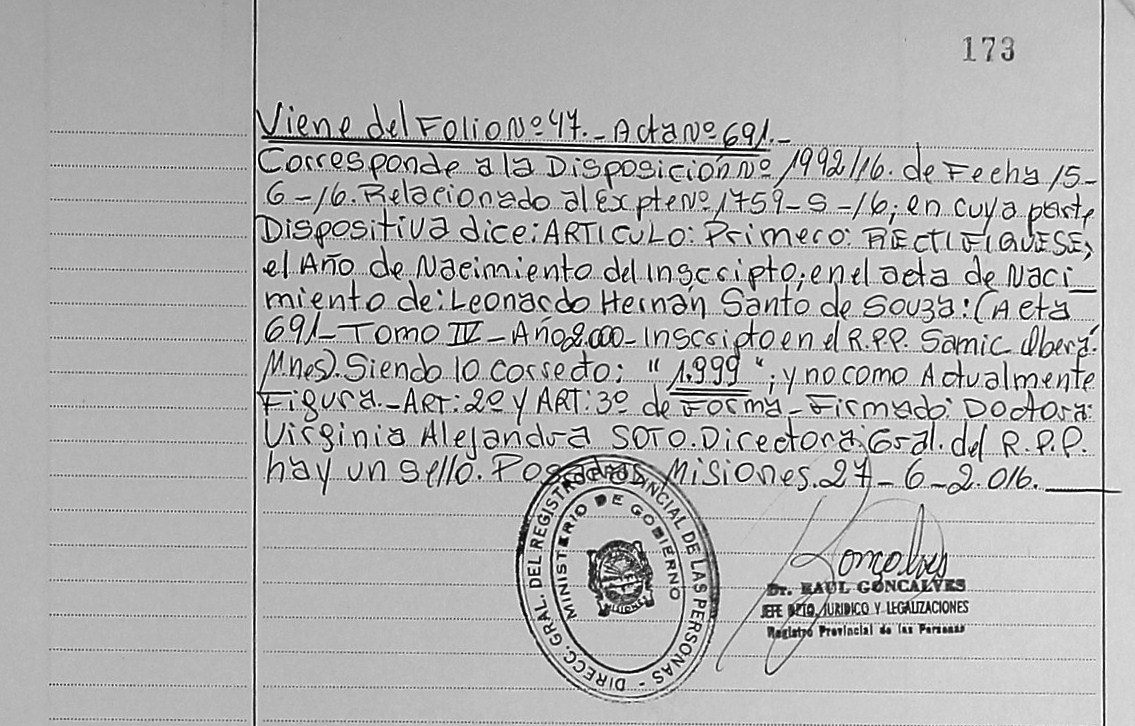 173
Viene del Folio Nº 47.- Acta Nº 691.-
Corresponde a la Disposición Nº 1992/16. de Fecha 15-
6-16. Relacionado al expte Nº 1759-S-16; en cuya parte
Dispositiva dice: ARTICULO: Primero: RECTIFIQUESE,
el Año de Nacimiento del Inscripto; en el acta de Naci-
miento de: Leonardo Hernán Santo de Souza: (Acta
691- Tomo IV - Año 2.000- Inscripto en el R.P.P. Samic Oberá-
Mnes). Siendo lo correcto: "1.999"; y no como Actualmente
Figura.- ART: 2º y ART: 3º de Forma- Firmado: Doctora:
Virginia Alejandra SOTO. Directora Gral. del R.P.P.
hay un sello. Posadas Misiones. 27-6-2.016.
DIRECC. GRAL. DEL REGISTRO PROVINCIAL DE LAS PERSONAS -
MINISTERIO DE GOBIERNO
MISIONES
Goncalves
Dr. RAUL GONCALVES
JEFE DPTO. JURIDICO Y LEGALIZACIONES
Registro Provincial de las Personas